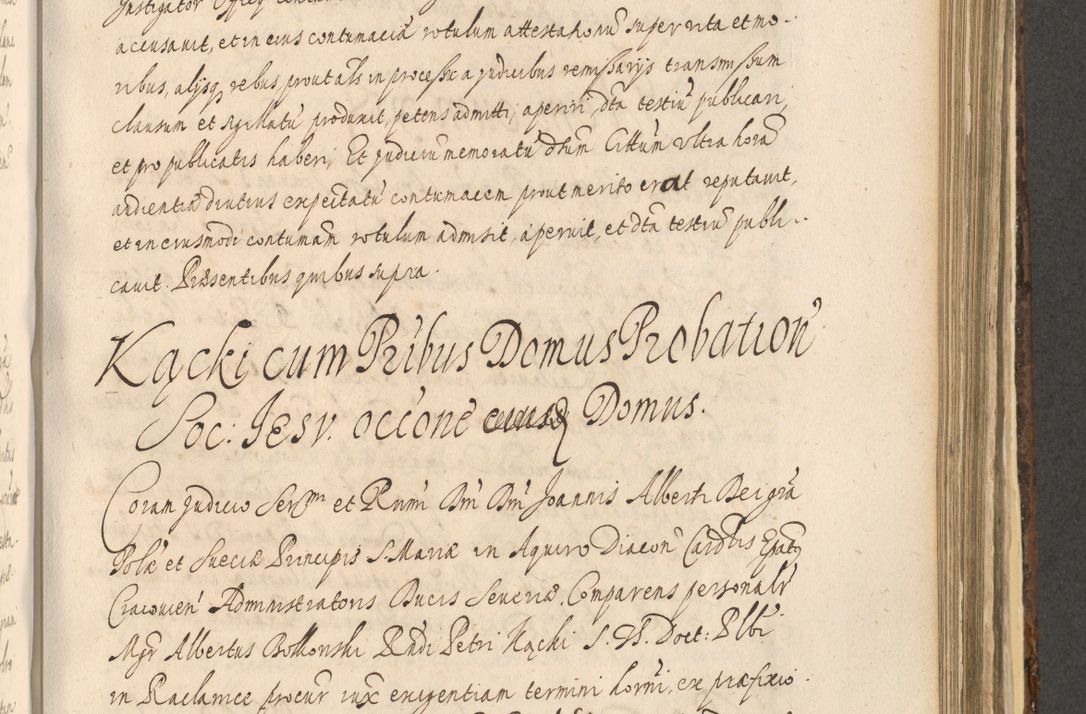 Instigator Officij
accusavit, et in eius contumaciã rotulum attestationũ super vita et mo-
ribus, alijsq, rebus, prout als in processu a judicibus remissarijs transmissum
clausum et sigillatũ produxit, petens admitti, aperiri, dta testiũ publicari,
et pro publicatis haberi, Et judiciũ memoratũ dtum Cittũm ultra horã
audientiã diutius expectatũ contumacem prout merito erat reputavit,
et in eiusmodi contumam rotulum admisit, aperuit, et dta testiũ publi-
cavit. Præsentibus quibus supra.
Kącki cum Pribus Domus Probationˢ
Soc: Jesv. occõne Domus.
Coram judicio Sermi et Rnmi Dni Dni Joannis Alberti Dei gra
Polæ et Sueciæ Principis S. Mariæ in Aquiro Diaconi Cardlis Epatq
Cracovien Administratoris Ducis Severiæ. Comparens personalr
Mgr Albertus Bolkonski Rndi Petri Kącki S. Th. Doct: Plbi
in Raclawice procur iux exigentiam termini horni, ex præfixio-